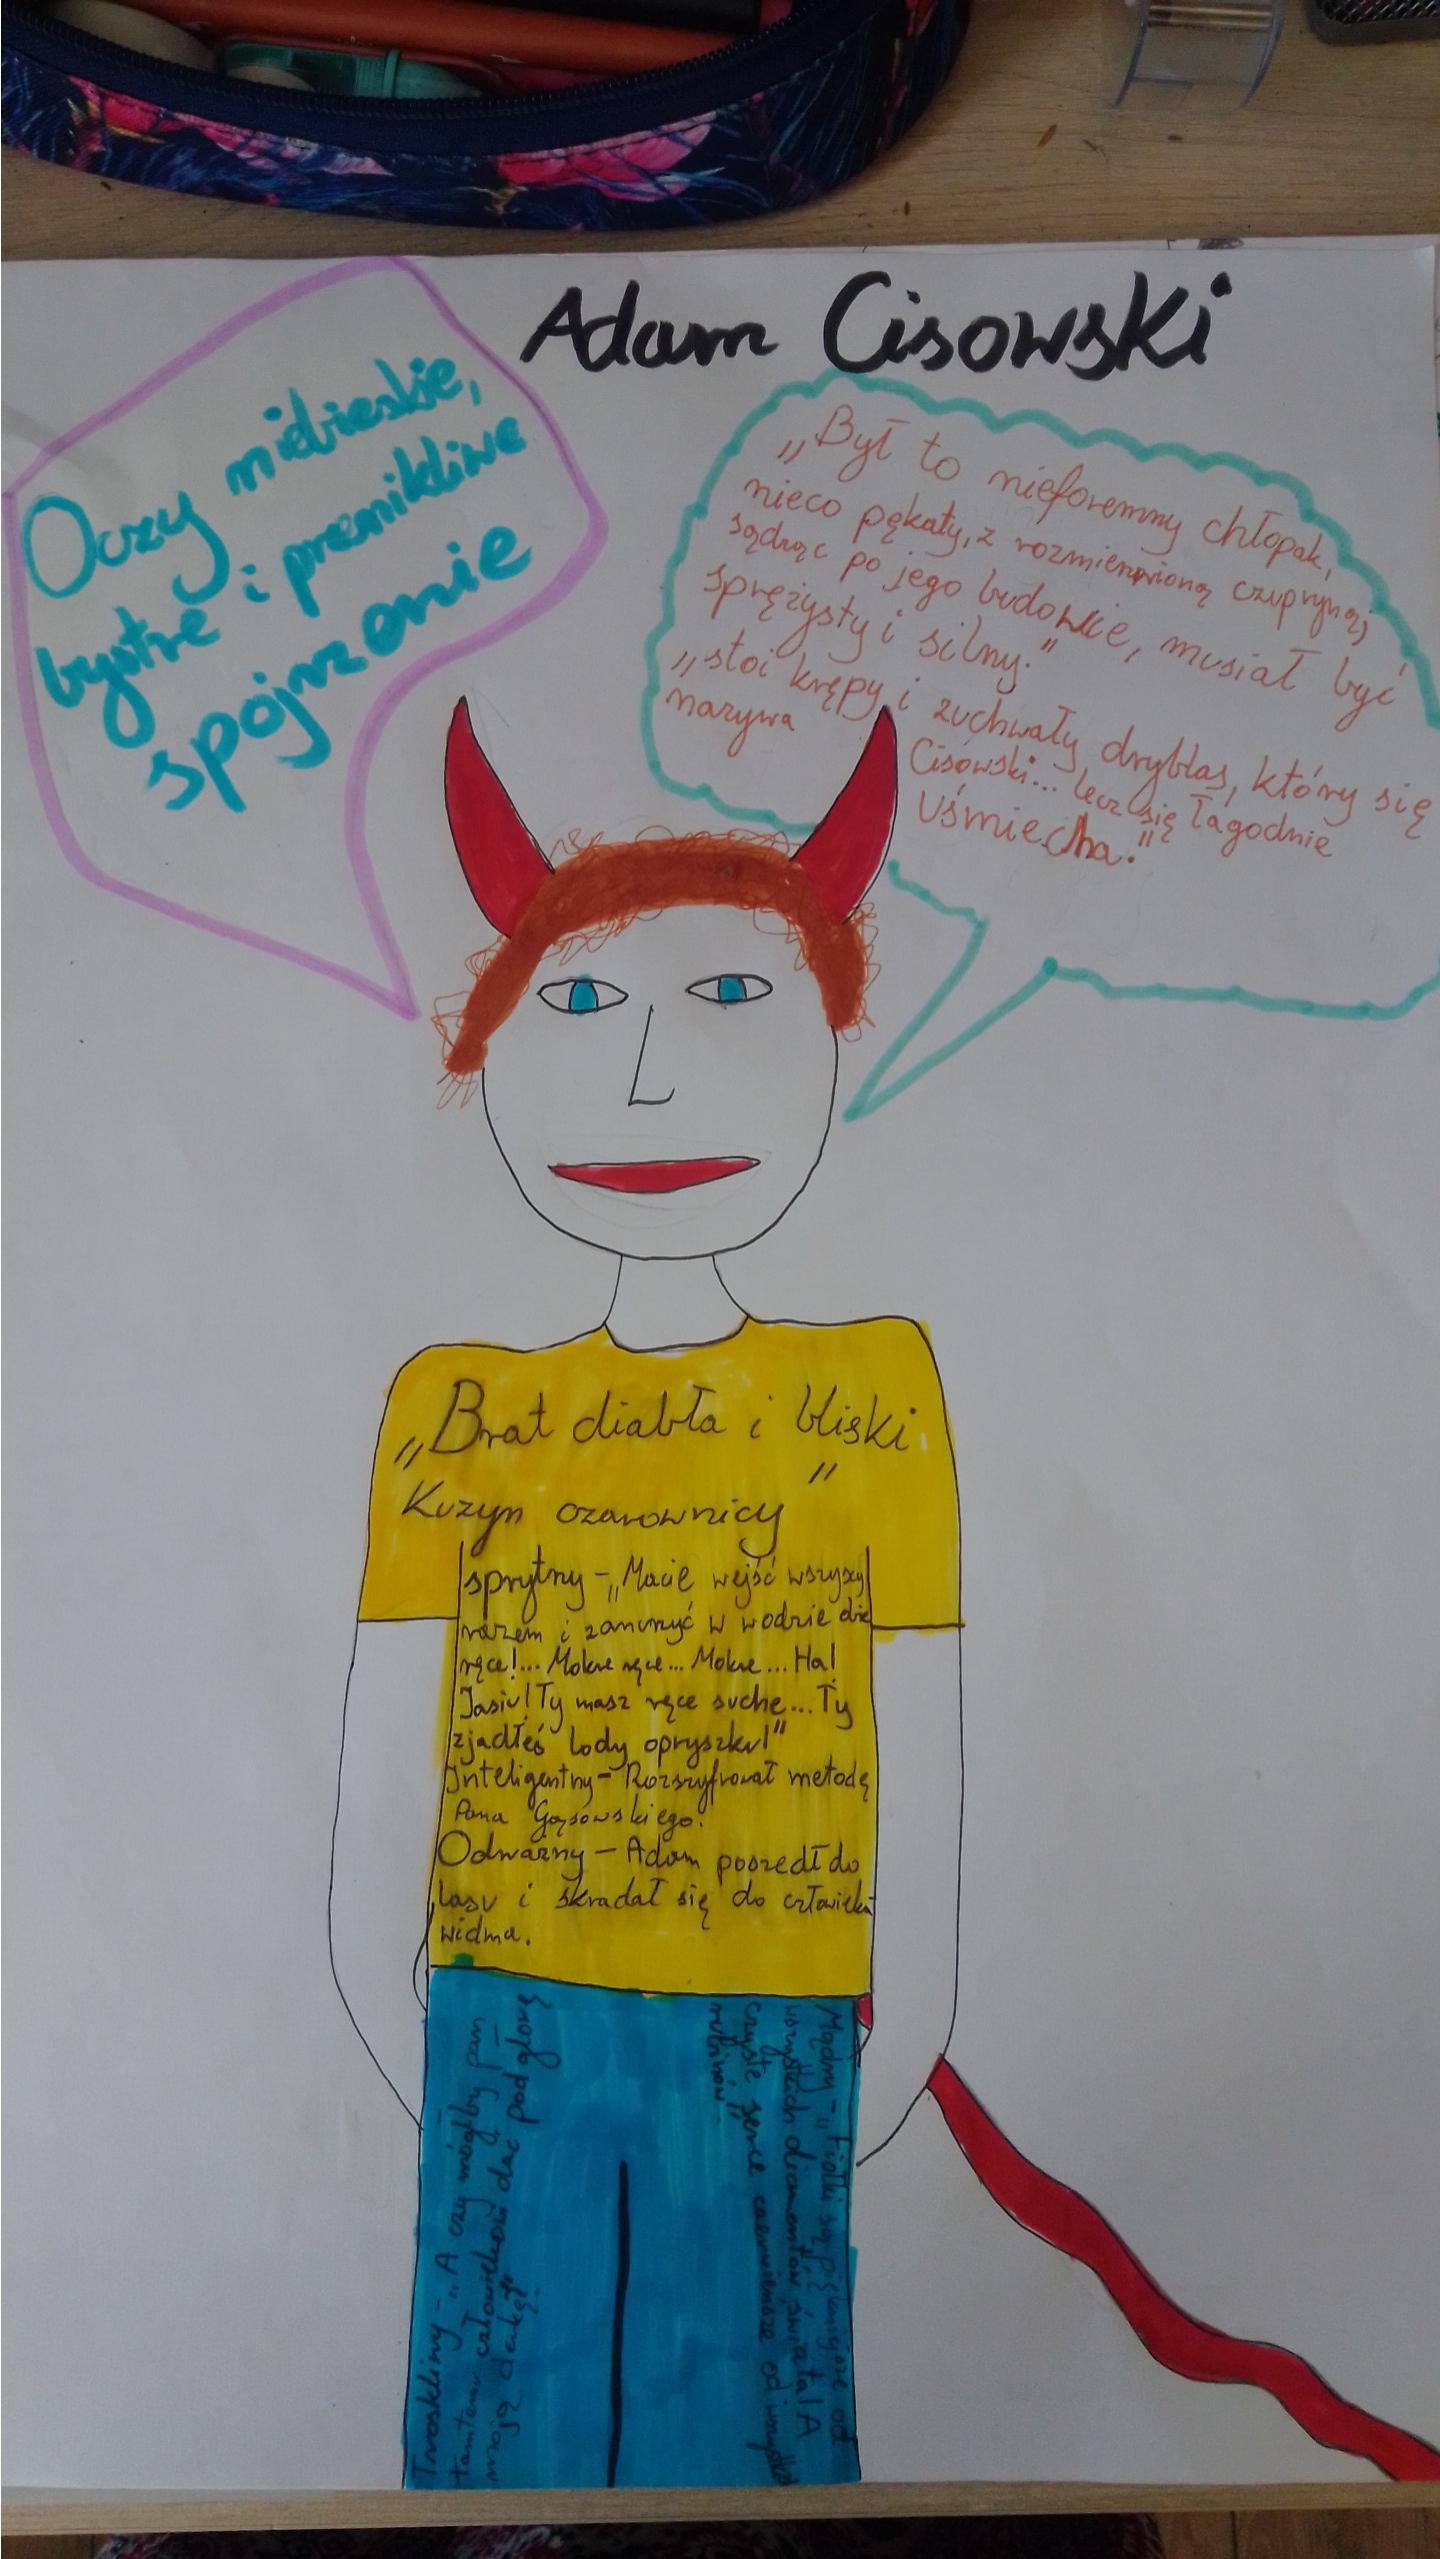 Adam Cisowski
Oczy niebieskie,
bystre i przenikliwe
spójrzenie
„Był to nieforemny chłopak,
nieco pękaty, z rozmierzwioną czupryną;
sądząc po jego budowie, musiał być
sprężysty i silny."
„stoi krępy i zuchwały dryblas, który się
nazywa Cisowski... lecz się łagodnie
uśmiecha."
„Brat diabła i bliski
Kuzyn czarownicy"
sprytny - „Macie wejść wszyscy
razem i zanurzyć w wodzie dwie
ręce!... Mokre ręce... Mokre... Ha!
Jasiu! Ty masz ręce suche... Ty
zjadłeś lody opryszku!"
Inteligentny - Rozszyfrował metodę
Pana Gąsowskiego.
Odważny - Adam poszedł do
lasu i skradał się do człowieka
widma.
Troskliwy - „A czy mógłby pan
tamtemu człowiekowi dać pod głowę
moją derkę?"
Mądry - „Fiołki są piękniejsze od
wszystkich diamentów świata! A
czyste serce czerwieńsze od wszystkich
rubinów."